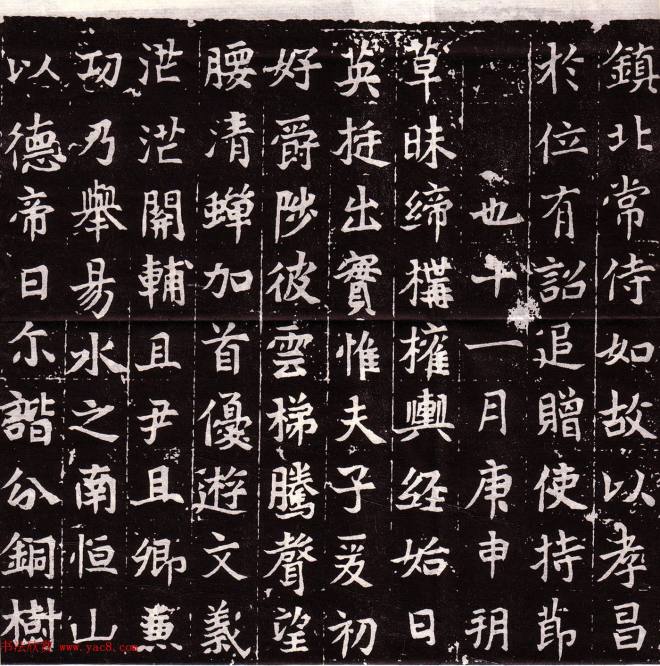 鎮北常侍如故以孝昌
於位有詔追贈使持節
也十一月庚申朔
草昧締構權輿經始日
英挺出實惟夫子爰初
好爵陟彼雲梯騰聲望
腰清蟬加首優遊文義
茫茫關輔且尹且卿蕙
功乃舉易水之南恒山
以德帝曰尓諧分銅樹
书法欣赏 www.yac8.com